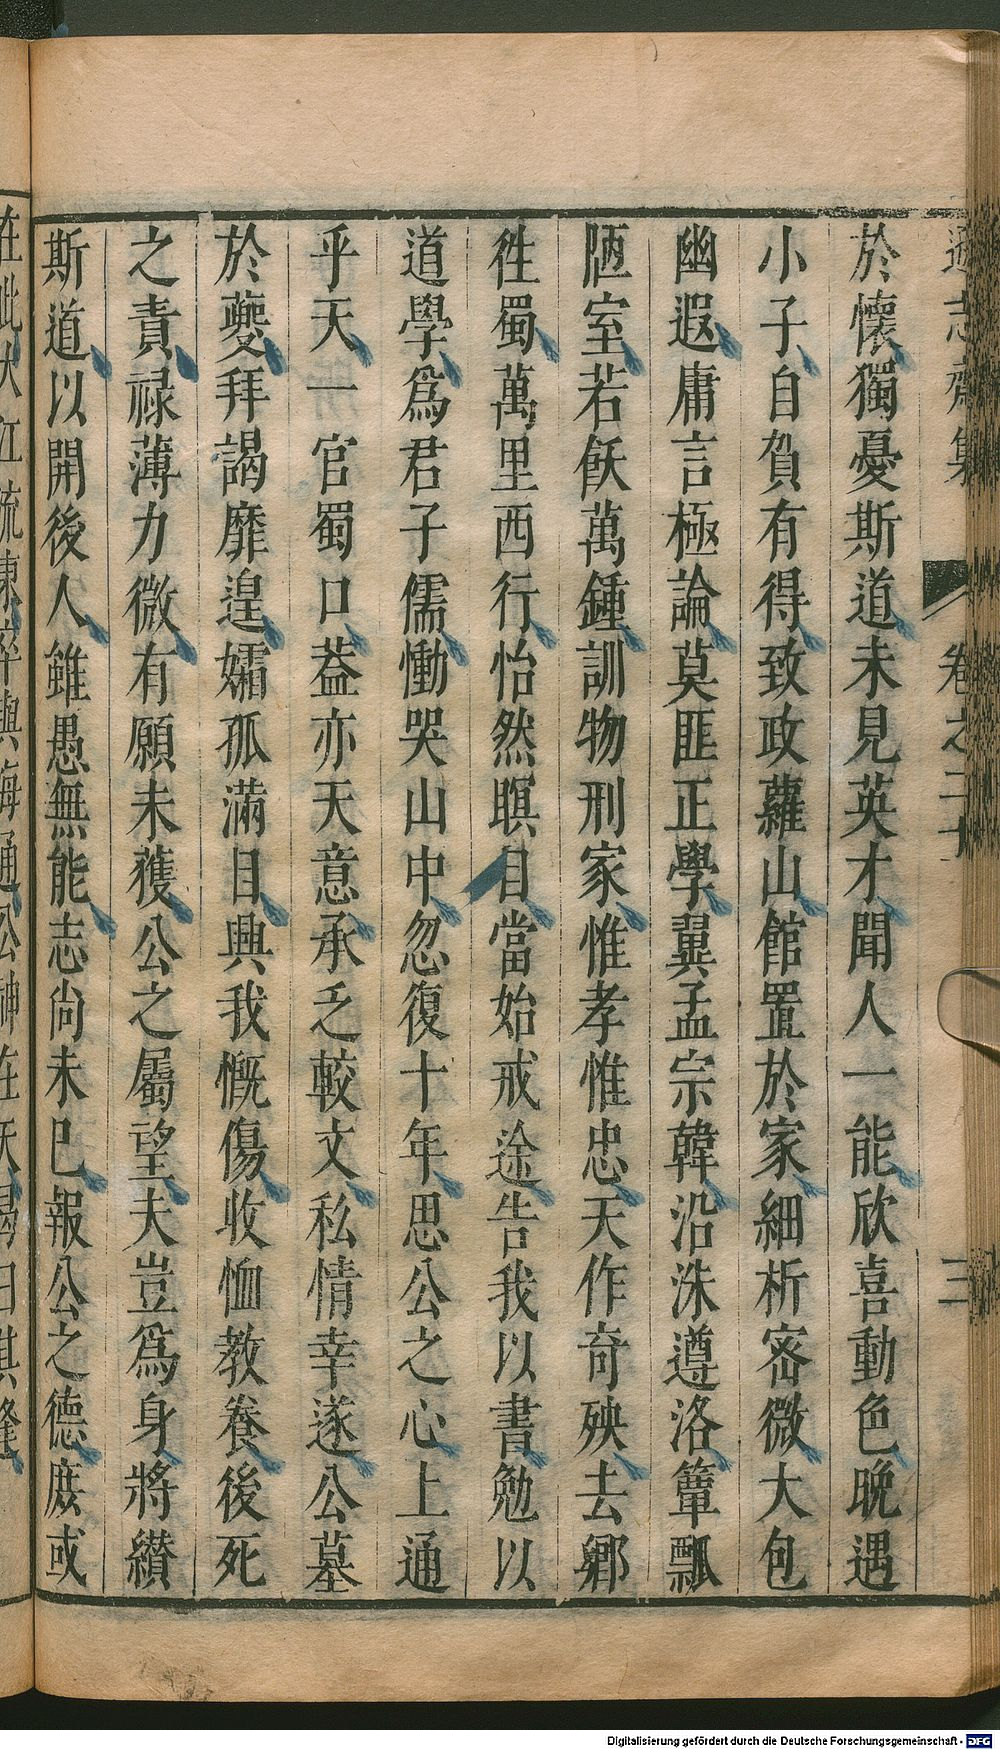 遜志齋集 卷之二十 三
於懷獨憂斯道未見英才聞人一能欣喜動色晚遇
小子自賀有得致政蘿山館置於家細析密微大包
幽遐庸言極論莫匪正學翼孟宗韓沿洙遵洛簞瓢
陋室若飫萬鍾訓物刑家惟孝惟忠天作奇殃去鄉
徃蜀萬里西行怡然瞑目當始戒途告我以書勉以
道學爲君子儒慟哭山中忽復十年思公之心上通
乎天一官蜀口葢亦天意承乏較文私情幸遂公墓
於夔拜謁靡遑孀孤滿目興我慨傷收恤教養後死
之責祿薄力微有願未獲公之屬望夫豈爲身將纉
斯道以開後人雖愚無能志尙未已報公之德庶或